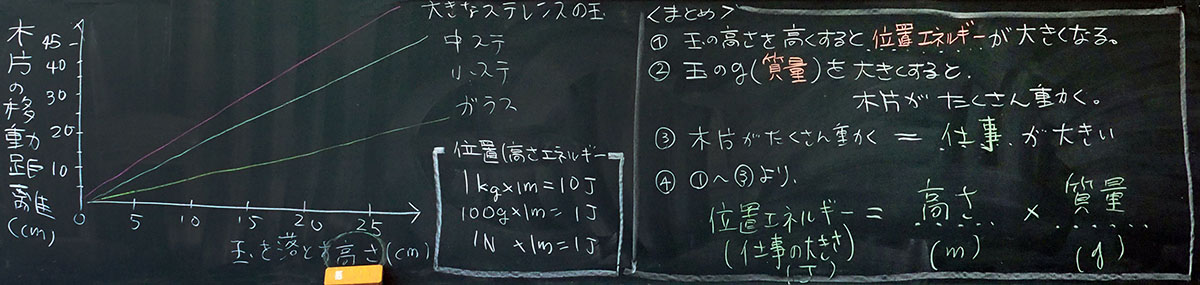 木片の移動距離(cm)
45
40
30
20
10
0 5 10 15 20 25
玉を落とす高さ(cm)
大きなステレンスの玉
中ステ
小ステ
ガラス
位置(高さエネルギー
1kg×1m=10J
100g×1m=1J
1N×1m=1J
<まとめ>
① 玉の高さを高くすると位置エネルギーが大きくなる。
② 玉のg(質量)を大きくすると、
木片がたくさん動かく。
③ 木片がたくさん動かく=仕事が大きい
④ ①~③より、
位置エネルギー=高さ×質量
(仕事の大きさ) (m) (g)
(J)